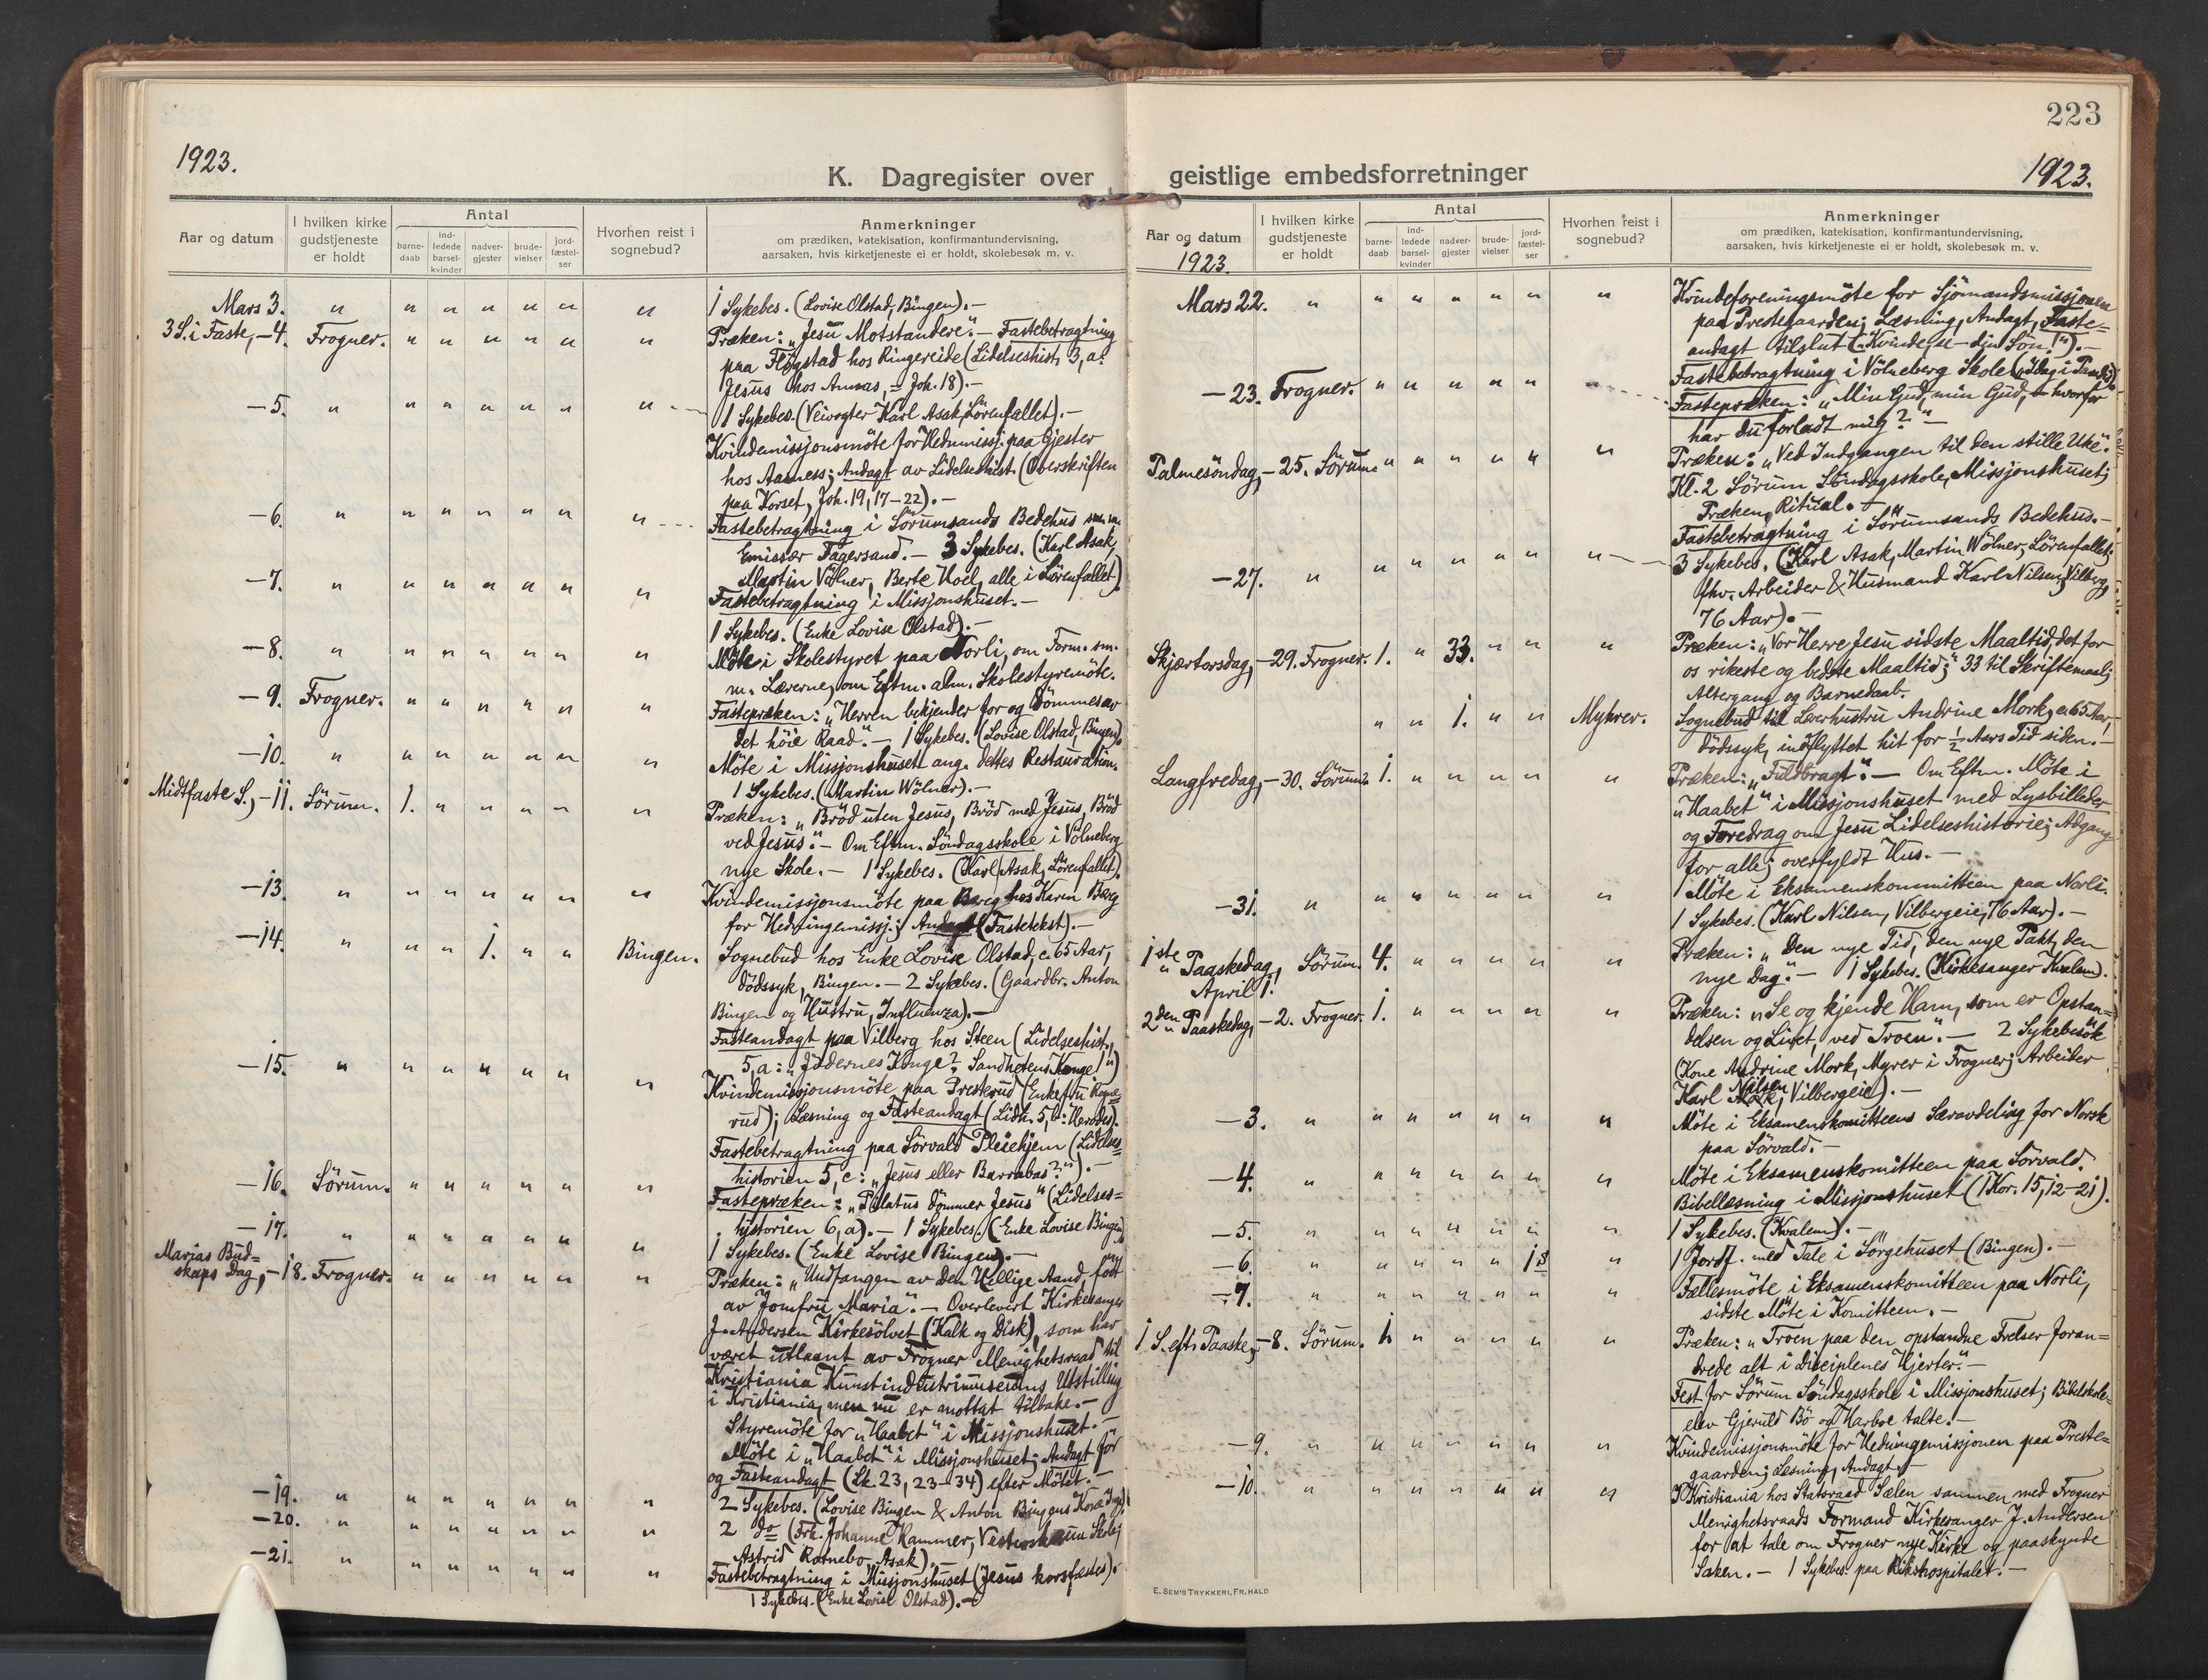 223
1923.
K. Dagregister over geistlige embedsforretninger
1923.
Aar og datum
I hvilken kirke gudstjeneste er holdt
Antal
barne-daab
ind-ledede barsel-kvinder
nadver-gjester
brude-vielser
jord-fæstel-ser
Hvorhen reist i sognebud?
Anmerkninger
om prædiken, katekisation, konfirmantundervisning,
aarsaken, hvis kirketjeneste ei er holdt, skolebesøk m. v.
Mars 3. " " " " " " " 1 Sykebes. (Lovise Olstad, Bingen).—
3 S. i Faste, —4. Frogner. " " " " " " Præken: „Jesu Motstandere“. — Fastebetragtning
paa Flögstad hos Ringereide (Lidelseshist. 3, a:
Jesus hos Annas, = Joh. 18).—
—5. " " " " " " " 1 Sykebes. (Veivogter Karl Asak, Sörenfallet).—
Kvindemissjonsmöte for Hedn.missj. paa Gjester
hos Aarness; Andagt av Lidelseshist. (Overskriften
paa Korset, Joh. 19, 17–22).—
—6. " " " " " " " Fastebetragtning i Sörumsands Bedehus sm. m.
Emissær Fagersand. — 3 Sykebes. (Karl Asak,
Martin Völner, Berte Hoel, alle i Sörenfallet)
—7. " " " " " " " Fastebetragtning i Missjonshuset.—
1 Sykebes. (Enke Lovise Olstad).—
—8. " " " " " " " Möte i Skolestyret paa Norli, om Form. sm.
m. Lærerne, om Eftm. alm. Skolestyremöte.
—9. Frogner. " " " " " " Fastepræken: „Herren bekjender for og dömmes av
det höie Raad“. — 1 Sykebes. (Lovise Olstad, Bingen).
—10. " " " " " " " Möte i Missjonshuset ang. dettes Restauration.
1 Sykebes. (Martin Wölner).—
Midtfaste S., —11. Sörum. 1. " " " " " Præken: „Bröd uten Jesus, Bröd med Jesus, Bröd
ved Jesus“. — Om Eftm. Söndagsskole i Völneberg
nye Skole. — 1 Sykebes. (Karl Asak, Sörenfallet).
—13. " " " " " " " Kvindemissjonsmöte paa Berg hos Karen Berg
for Hedningemissj.; Andagt (Fastetekst).—
—14. " " " 1. " " Bingen. Sognebud hos Enke Lovise Olstad, c. 65 Aar,
dödssyk, Bingen. — 2 Sykebes. (Gaardbr. Anton
Bingen og Hustru, Influenza).—
Fasteandagt paa Vilberg hos Steen (Lidelseshist.,
5, a: „Jödernes Konge? Sandhetens Konge!“)
—15. " " " " " " " Kvindemissjonsmöte paa Presterud (Enkefru
rud); Læsning og Fasteandagt (Lidh. 5, b: Herodes).
Fastebetragtning paa Sörvald Pleiehjem (Lidelses=
historien 5, c: „Jesus eller Barrabas?“).—
—16. Sörum. " " " " " " Fastepræken: „Pilatus dömmer Jesus“ (Lidelses=
historien 6, a). — 1 Sykebes. (Enke Lovise Bingen)
—17. " " " " " " " 1 Sykebes. (Enke Lovise Bingen).—
Marias Bud=
skaps Dag, —18. Frogner. " " " " " " Præken: „Undfangen av den Hellige Aand, födt
av Jomfru Maria“. — Overlevert Kirkesanger
J. Andersen Kirkesölvet (Kalk og Disk), som har
været utlaant av Frogner Menighetsraad til
Kristiania Kunstindustrimuseums Utstilling
i Kristiania, men nu er mottat tilbake.—
Styremöte for „Haabet“ i Missjonshuset.—
Möte i „Haabet“ i Missjonshuset; Andagt för
og Fasteandagt (Lk. 23, 23–34) efter Mötet.—
—19. " " " " " " " 2 Sykebes. (Lovise Bingen & Anton Bingens Kone
—20. " " " " " " " 2 do (Frk. Johanne Hammer, Skole;
Astrid Rotnebo, Asak).—
—21. " " " " " " " Fastebetragtning i Missjonshuset (Jesus korsfæstes).
1 Sykebes. (Enke Lovise Olstad).—
Aar og datum
1923.
I hvilken kirke gudstjeneste er holdt
Antal
barne-daab
ind-ledede barsel-kvinder
nadver-gjester
brude-vielser
jord-fæstel-ser
Hvorhen reist i sognebud?
Anmerkninger
om prædiken, katekisation, konfirmantundervisning,
aarsaken, hvis kirketjeneste ei er holdt, skolebesøk m. v.
Mars 22. " " " " " " " Kvindeforeningsmöte for Sjömandsmissjonen
paa Prestegaarden; Læsning, Andagt, Faste=
andagt tilslut („Kvinde, se – din Sön!“).—
Fastebetragtning i Völneberg Skole
—23. Frogner. " " " " " " Fastepræken: „Min Gud, min Gud, hvorfor
har du forladt mig?“—
Palmesöndag, —25. Sörum. " " " " " " Præken: „Ved Indgangen til den stille Uke“.
Kl. 2 Sörum Söndagsskole, Missjonshuset;
Præken, Ritual.—
Fastebetragtning i Sörumsands Bedehus.—
—27. " " " " " " " 3 Sykebes. (Karl Asak, Martin Wölner, Sörenfallet;
fhv. Arbeider & Husmand Karl Nilsen, Vilberg,
76 Aar).—
Skjærtorsdag, —29. Frogner. 1. " 33. " " " Præken: „Vor Herre Jesu sidste Maaltid, det for
os rikeste og bedste Maaltid;“ 33 til Skriftemaal;
Altergang og Barnedaab.
" " 1. " " Myhrer. Sognebud til Leierhustru Andrine Mork, c. 65 Aar,
dödssyk, indflyttet hit for ½ Aars Tid siden.—
Langfredag, —30. Sörum. 1. " " " " " Præken: „Fuldbragt“. — Om Eftm. Möte i
„Haabet“ i Missjonshuset med Lysbilleder
og Foredrag om Jesu Lidelseshistorie; Adgang
for alle; overfyldt Hus.—
—31. " " " " " " " 1 Möte i Eksamenskommitteen paa Norli.
1 Sykebes. (Karl Nilsen, Vilbergeie, 76 Aar).—
1ste Paaskedag, April 1. Sörum. 4. " " " " " Præken: „Den nye Tid, den nye Pakt, den
nye Dag“. — 1 Sykebes. (Kirkesanger Kvalem).
2den Paaskedag, —2. Frogner. 1. " " " " " Præken: „Se og kjende Ham, som er Opstan=
delsen og Livet, ved Troen“. — 2 Sykebesök
(Kone Andrine Mork, Myrer i Frogner; Arbeider
Karl Nilsen, Vilbergeie).—
—3. " " " " " " " Möte i Eksamenskomitteens Særavdeling for Norsk
paa Sörvald.—
—4. " " " " " " " Möte i Eksamenskomitteen paa Sörvald.
Bibellæsning i Missjonshuset (1 Kor. 15, 12–21).
—5. " " " " " " " 1 Sykebes. (Kvalem).—
—6. " " " " " 1 " 1 Jordf. med Tale i Sörgehuset (Bingen).—
—7. " " " " " " " Fællesmöte i Eksamenskomitteen paa Norli,
sidste Möte i Komitteen.—
1 S. eft. Paaske, —8. Sörum. 1. " " " " " Præken: „Troen paa den opstandne Frelser foran=
drede alt i Disciplenes Hjerter“.—
Fest for Sörum Söndagsskole i Missjonshuset; Bibelskole=
elev Gjeruld Bö og Harboe talte.—
—9. " " " " " " " Kvindemissjonsmöte for Hedningemissjonen paa Preste=
gaarden; Læsning, Andagt.—
—10. " " " " " " " I Kristiania hos Statsraad Sælen sammen med Frogner
Menighetsraads Formand Kirkesanger J. Andersen
for at tale om Frogner nye Kirke og paaskynde
Saken. — 1 Sykebes. paa Rikshospitalet.—
E. SEM'S TRYKKERI, FR.HALD